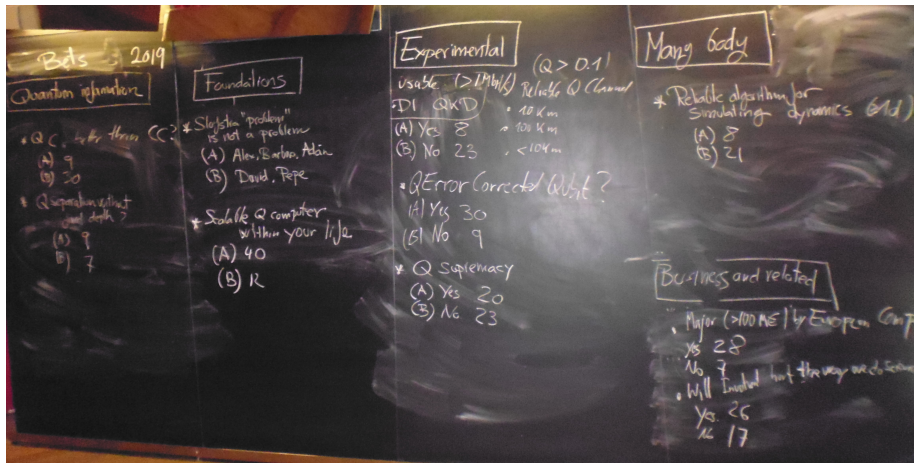 Bets 2019
Quantum information
* QC better than CC?
(A) 9
(B) 30
* Q separation without
depth?
(A) 9
(B) 7
Foundations
* "problem"
is not a problem
(A) Alex, Barbara, Adán
(B) David, Pepe
* Scalable Q computer
within your life
(A) 40
(B) 12
Experimental
usable (>1Mb/s)
DI QKD
(A) Yes 8
(B) No 23
(Q > 0.1)
Reliable Q Channel
10 Km
100 Km
* Q Error Corrected Qubit?
(A) Yes 30
(B) No 9
* Q supremacy
(A) Yes 20
(B) No 23
Many body
* Reliable algorithm for
simulating dynamics
(A) 8
(B) 21
Business and related
Major (>100 M€) by European Comp
Yes 28
No 7
Will hurt the way we do Science
Yes 26
No 17